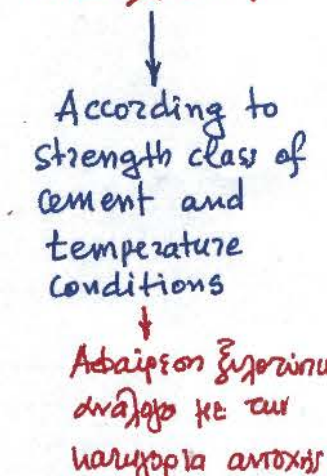 According to
strength class of
cement and
temperature
conditions
Αφαίρεση ξυλοτύπω
ανάλογα με την
κατηγορία αντοχής